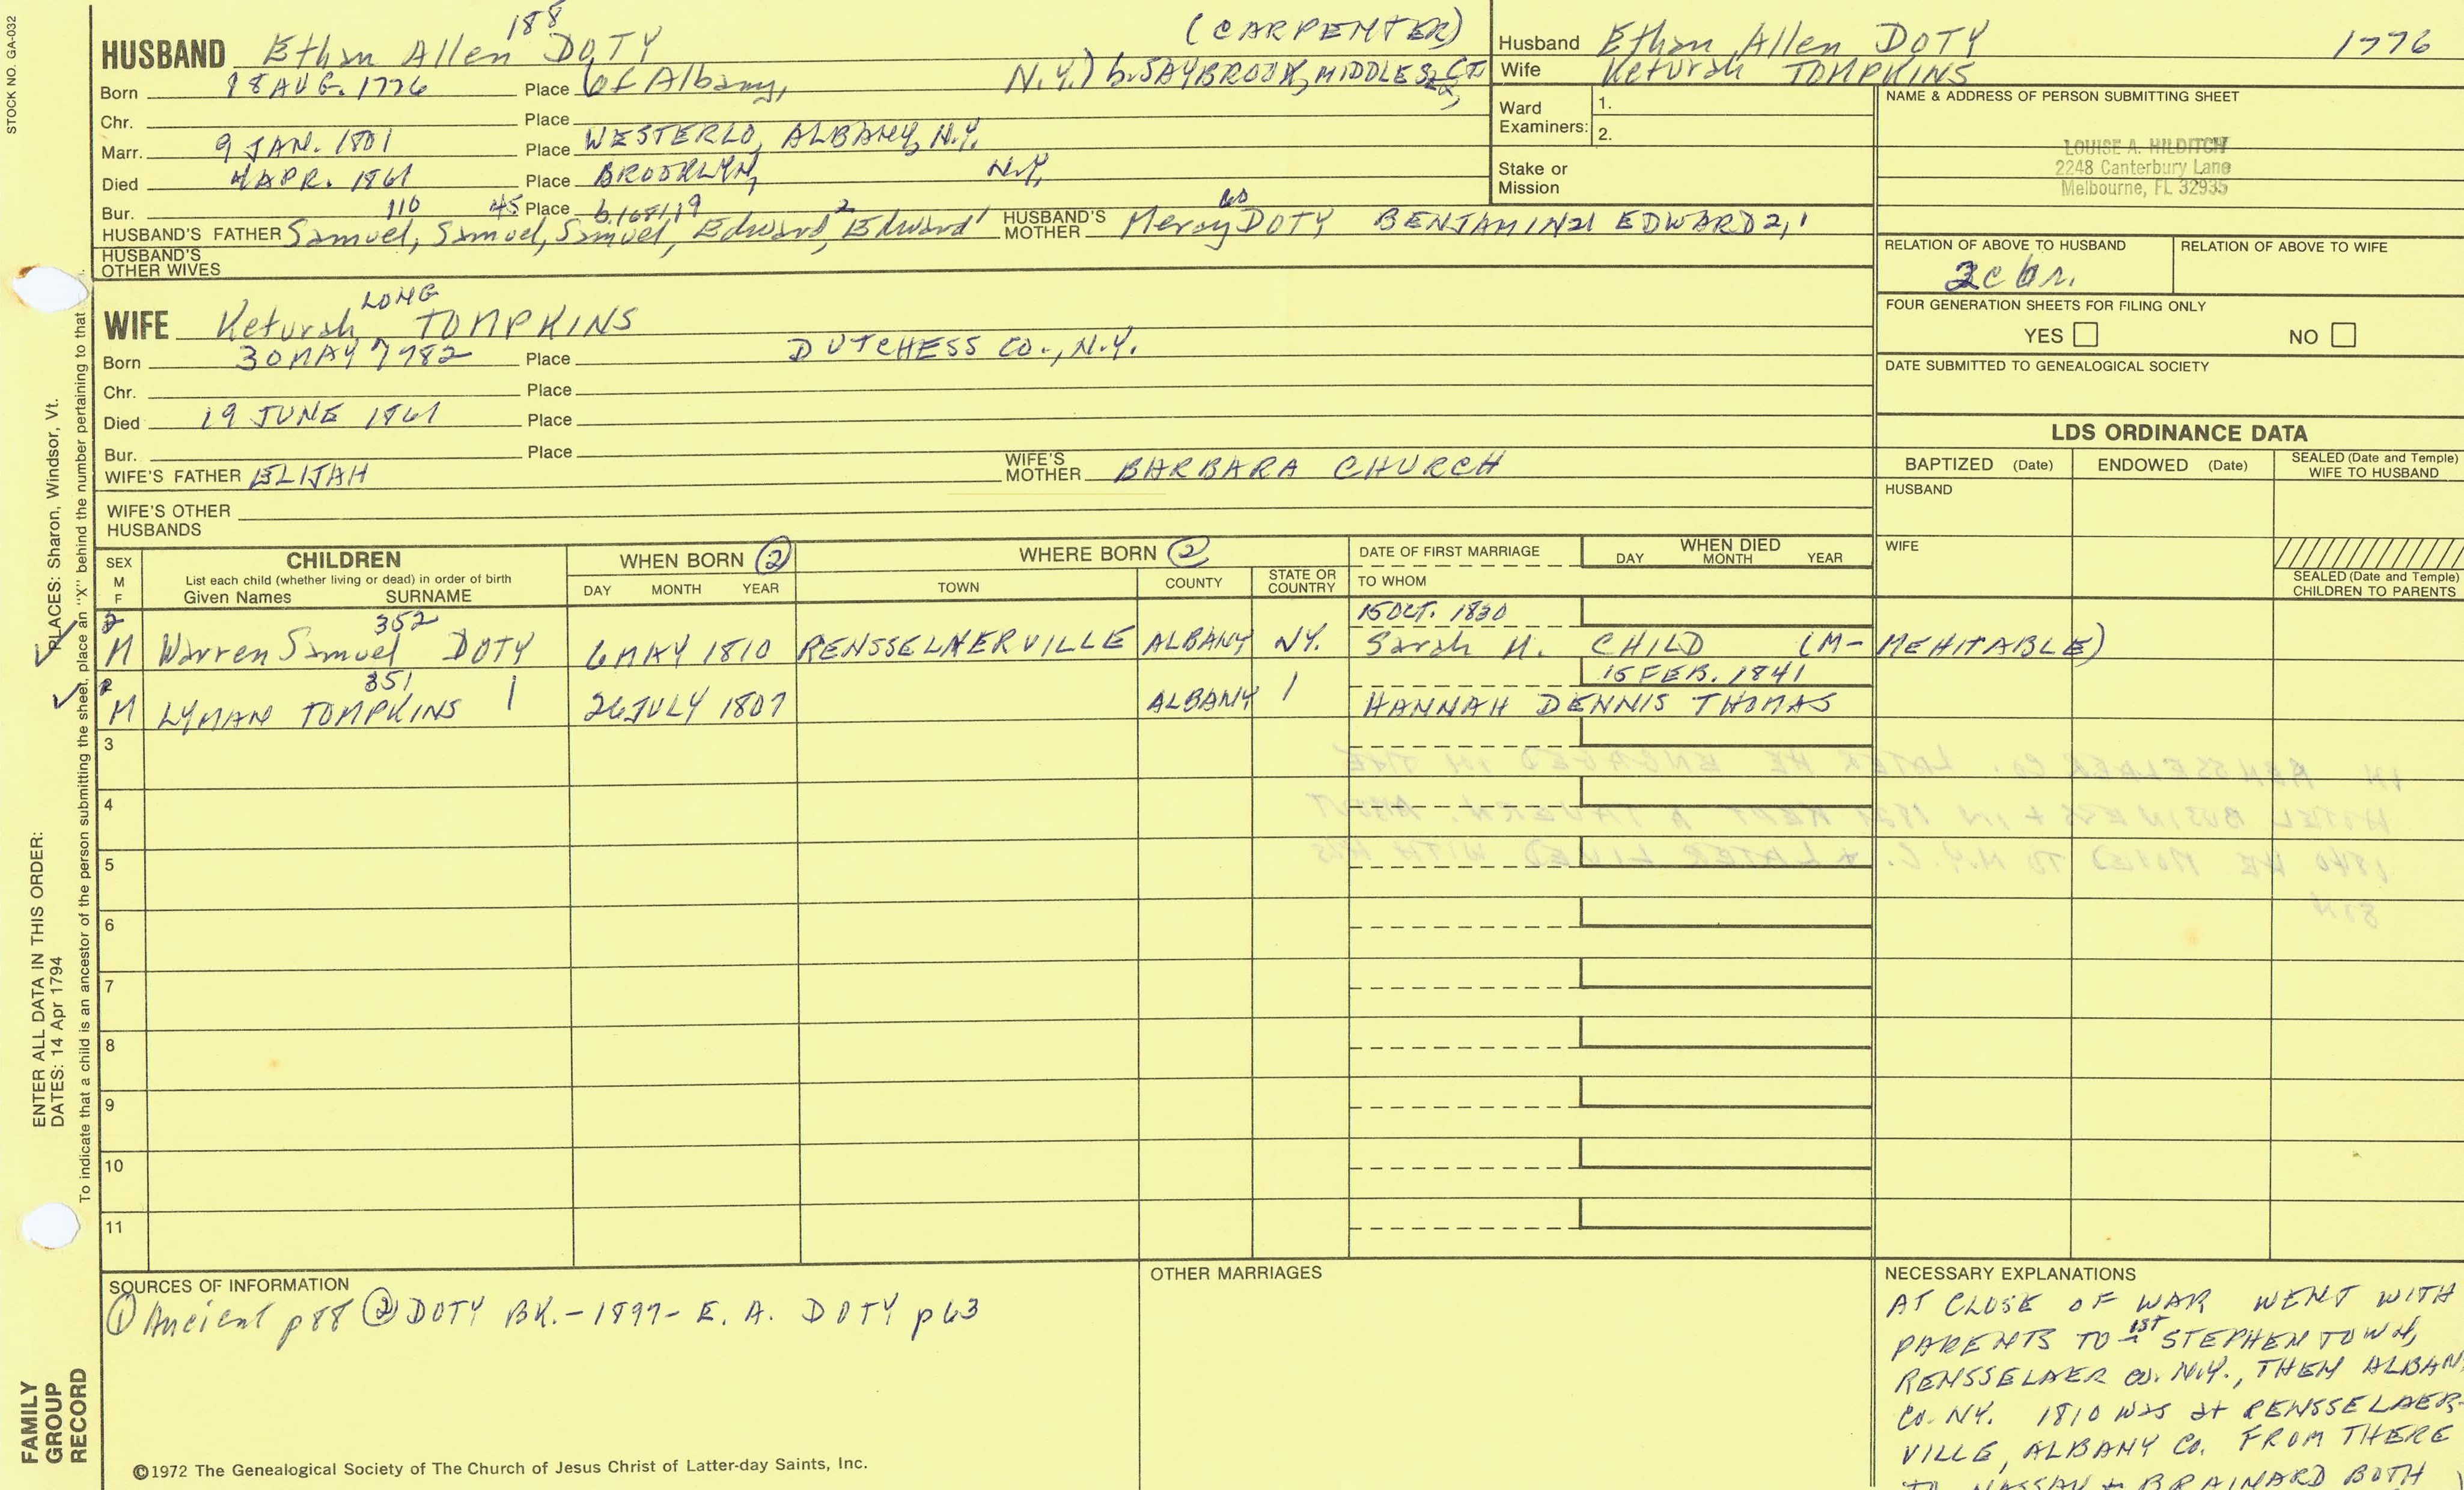 STOCK NO. GA-032
HUSBAND Ethan Allen 188 DOTY (CARPENTER)
Born 18 AUG. 1776 Place (of Albany, N.Y.) b. SAYBROOK, MIDDLESEX, CT.
Chr. Place
Marr. 9 JAN. 1801 Place WESTERLO, ALBANY, N.Y.
Died 4 APR. 1861 Place BROOKLYN, N.Y.
Bur. Place
110 45
HUSBAND'S FATHER Samuel, Samuel, Samuel, Edward,2 Edward1 HUSBAND'S MOTHER Mercy 60 DOTY BENJAMIN21 EDWARD2,1
HUSBAND'S OTHER WIVES
WIFE Keturah LONG TOMPKINS
Born 30 MAY 1782 Place DUTCHESS CO., N.Y.
Chr. Place
Died 19 JUNE 1861 Place
Bur. Place
WIFE'S FATHER ELIJAH WIFE'S MOTHER BARBARA CHURCH
WIFE'S OTHER HUSBANDS
Husband Ethan Allen DOTY 1776
Wife Keturah TOMPKINS
Ward Examiners: 1.
2.
Stake or Mission
NAME & ADDRESS OF PERSON SUBMITTING SHEET
LOUISE A. HILDITCH
2248 Canterbury Lane
Melbourne, FL 32935
RELATION OF ABOVE TO HUSBAND RELATION OF ABOVE TO WIFE
FOUR GENERATION SHEETS FOR FILING ONLY
YES NO
DATE SUBMITTED TO GENEALOGICAL SOCIETY
LDS ORDINANCE DATA
BAPTIZED (Date) ENDOWED (Date) SEALED (Date and Temple) WIFE TO HUSBAND
HUSBAND
WIFE
SEALED (Date and Temple) CHILDREN TO PARENTS
SEX M F
CHILDREN
List each child (whether living or dead) in order of birth
Given Names SURNAME
WHEN BORN ②
DAY MONTH YEAR
WHERE BORN ②
TOWN COUNTY STATE OR COUNTRY
DATE OF FIRST MARRIAGE
TO WHOM
WHEN DIED
DAY MONTH YEAR
352 15 OCT. 1830
M Warren Samuel DOTY 6 MAY 1810 RENSSELAERVILLE ALBANY NY. Sarah M. CHILD (M-MEHITABLE)
351 15 FEB. 1841
M LYMAN TOMPKINS 26 JULY 1807 ALBANY HANNAH DENNIS THOMAS
3
4
5
6
7
8
9
10
11
SOURCES OF INFORMATION
① Ancient p88 ② DOTY BK.-1897- E. A. DOTY p63
OTHER MARRIAGES
NECESSARY EXPLANATIONS
AT CLOSE OF WAR WENT WITH
PARENTS TO 1ST STEPHENTOWN,
RENSSELAER CO. N.Y., THEN ALBAN
CO. NY. 1810 was at RENSSELAER-
VILLE, ALBANY CO. FROM THERE
TO NASSAU & BRAINARD BOTH
©1972 The Genealogical Society of The Church of Jesus Christ of Latter-day Saints, Inc.
PLACES: Sharon, Windsor, Vt.
ENTER ALL DATA IN THIS ORDER:
DATES: 14 Apr 1794
To indicate that a child is an ancestor of the person submitting the sheet, place an "X" behind the number pertaining to that
FAMILY
GROUP
RECORD